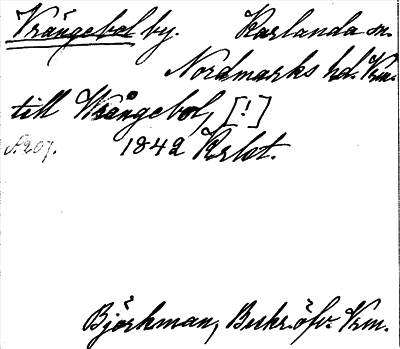 Vrångebol by. Karlanda sn.
Nordmarks hd. Vrm.
till Wrångebol, [!]
S. 207. 1842 Krbt.
Björkman, Beskr. öfv. Vrm.